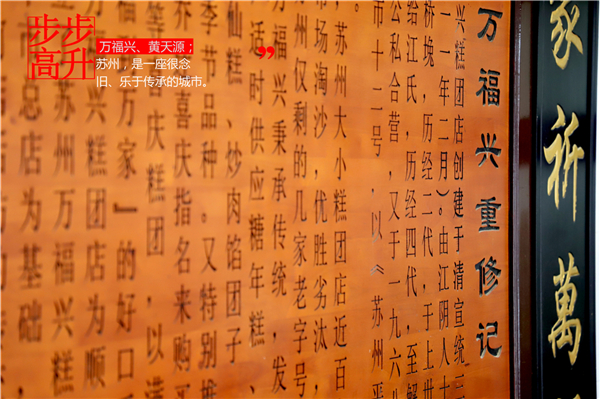 步步
高升
万福兴、黄天源；
苏州，是一座很念
旧、乐于传承的城市。
”
祈萬
万福兴重修记
兴糕团店创建于清宣统三
一一年二月)。由江阴人士
桥堍，历经二代，于上世
给江氏，历经四代，至解
公私合营，又于一九六八
市十二号，以《苏州平
苏州大小糕团店近百
市场淘沙，优胜劣汰，
州仅剩的几家老字号
万福兴秉承传统，发
适时供应糖年糕、
仙糕、炒肉馅团子
季节品种。又特别推
喜庆指名来购买
喜庆糕团，以满
万家』的好口
兴糕团店为顺
苏州万福兴糕
总店为基础